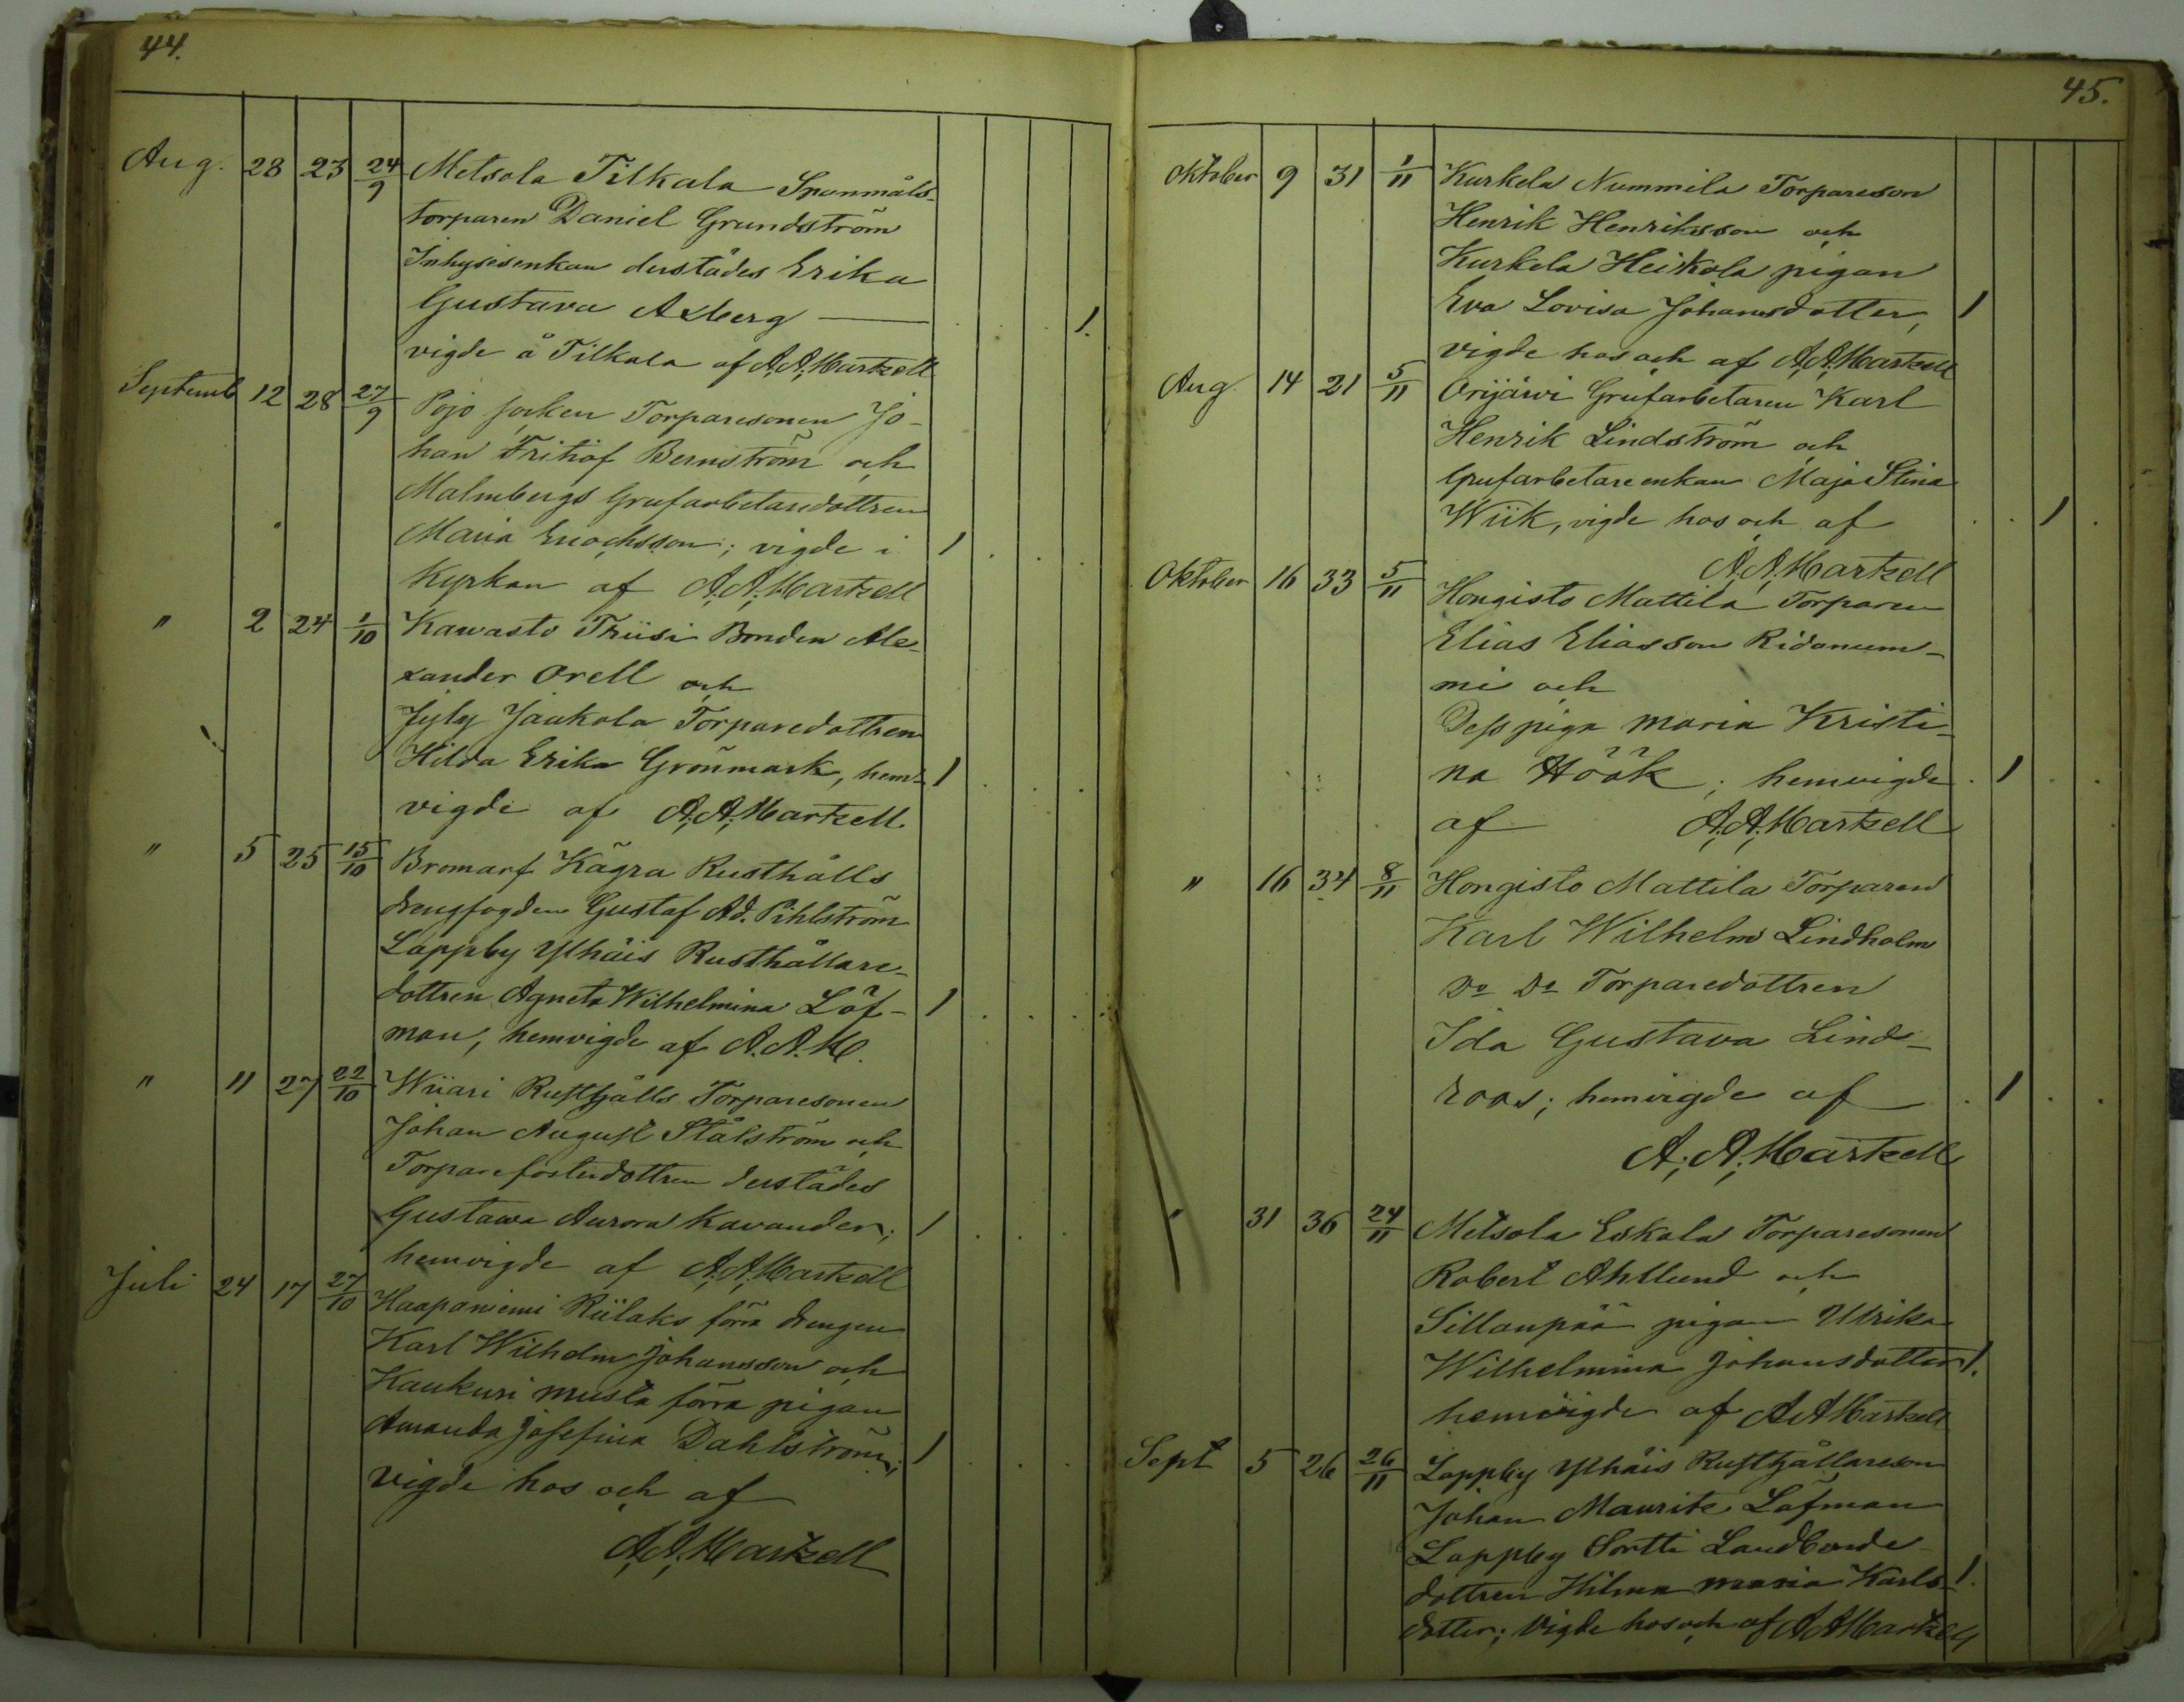 44.
Aug. 28 23 24/9 Metsola Tilkala Spanmåls-
torparen Daniel Grundström
Inhysesenkan derstädes Erika
Gustava Axberg — 1.
vigde å Tilkala af A. A. Martzell
Septemb 12 28 27/9 Pojo socken Torparesonen Jo-
han Frithiof Bernström och
Malmbergs Grufarbetaredottren
Maria Enochsson; vigde i 1
Kyrkan af A. A. Martzell
" 2 24 1/10 Kawasto Thiisi Bonden Ale-
xander Orell och
Jyly Jaukola Torparedottren
Hilda Erika Grönmark, hem- 1
vigde af A. A. Martzell
" 5 25 15/10 Bromarf Kägra Rusthålls
drengfogden Gustaf Ad. Pihlström
Lappby Ylhäis Rusthållare-
dottren Agneta Wilhelmina Löf- 1
man, hemvigde af A. A. M.
" 11 27 22/10 Wiiari Rusthålls Torparesonen
Johan August Stålström och
Torparefosterdottren derstädes
Gustava Aurora Kavander; 1
hemvigde af A. A. Martzell
Juli 24 17 27/10 Haapaniemi Riilaks förra drengen
Karl Wilhelm Johansson och
Kaukuri Musta förra pigan
Amanda Josefina Dahlström; 1
vigde hos och af
A. A. Martzell
45.
Oktober 9 31 1/11 Kurkela Nummila Torpareson
Henrik Henriksson och
Kurkela Heikola pigan
Eva Lovisa Johansdotter, 1
vigde hos och af A. A. Martzell
Aug. 14 21 5/11 Orijärvi Grufarbetaren Karl
Henrik Lindström och
Grufarbetareenkan Maja Stina
Wiik, vigde hos och af 1
A. A. Martzell
Oktober 16 33 5/11 Hongisto Mattila Torparen
Elias Eliasson Ridanum-
mi och
Dess piga Maria Kristi-
na Höök; hemvigde 1
af A. A. Martzell
" 16 34 8/11 Hongisto Mattila Torparen
Karl Wilhelm Lindholm
Do Do Torparedottren
Ida Gustava Lind-
roos; hemvigde af 1
A. A. Martzell
" 31 36 24/11 Metsola Eskola Torparesonen
Robert Ahllund och
Sillanpää pigan Ulrika
Wilhelmina Johansdotter 1.
hemvigde af A A Martzell
Sept 5 26 26/11 Lappby Ylhäis Rusthållareson
Johan Mauritz Löfman
Lappby Sortti Landbonde-
dottren Hilma Maria Karls- 1.
dotter; Vigde hos och af A A Martzell